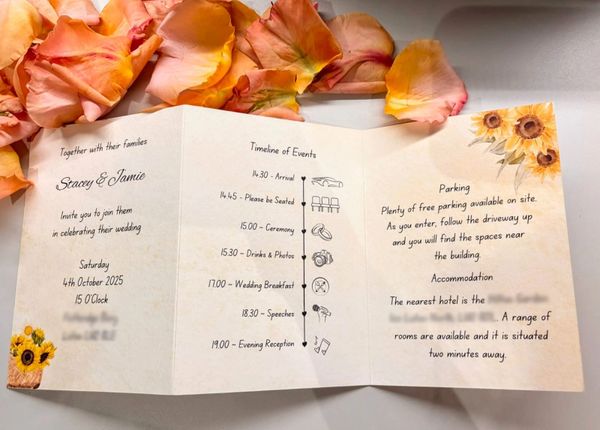 Together with their families
Stacey & Jamie
Invite you to join them
in celebrating their wedding
Saturday
4th October 2025
15 O'Clock
Timeline of Events
14.30 - Arrival
14.45 - Please be Seated
15.00 - Ceremony
15.30 - Drinks & Photos
17.00 - Wedding Breakfast
18.30 - Speeches
19.00 - Evening Reception
Parking
Plenty of free parking available on site.
As you enter, follow the driveway up
and you will find the spaces near
the building.
Accommodation
The nearest hotel is the
A range of
rooms are available and it is situated
two minutes away.